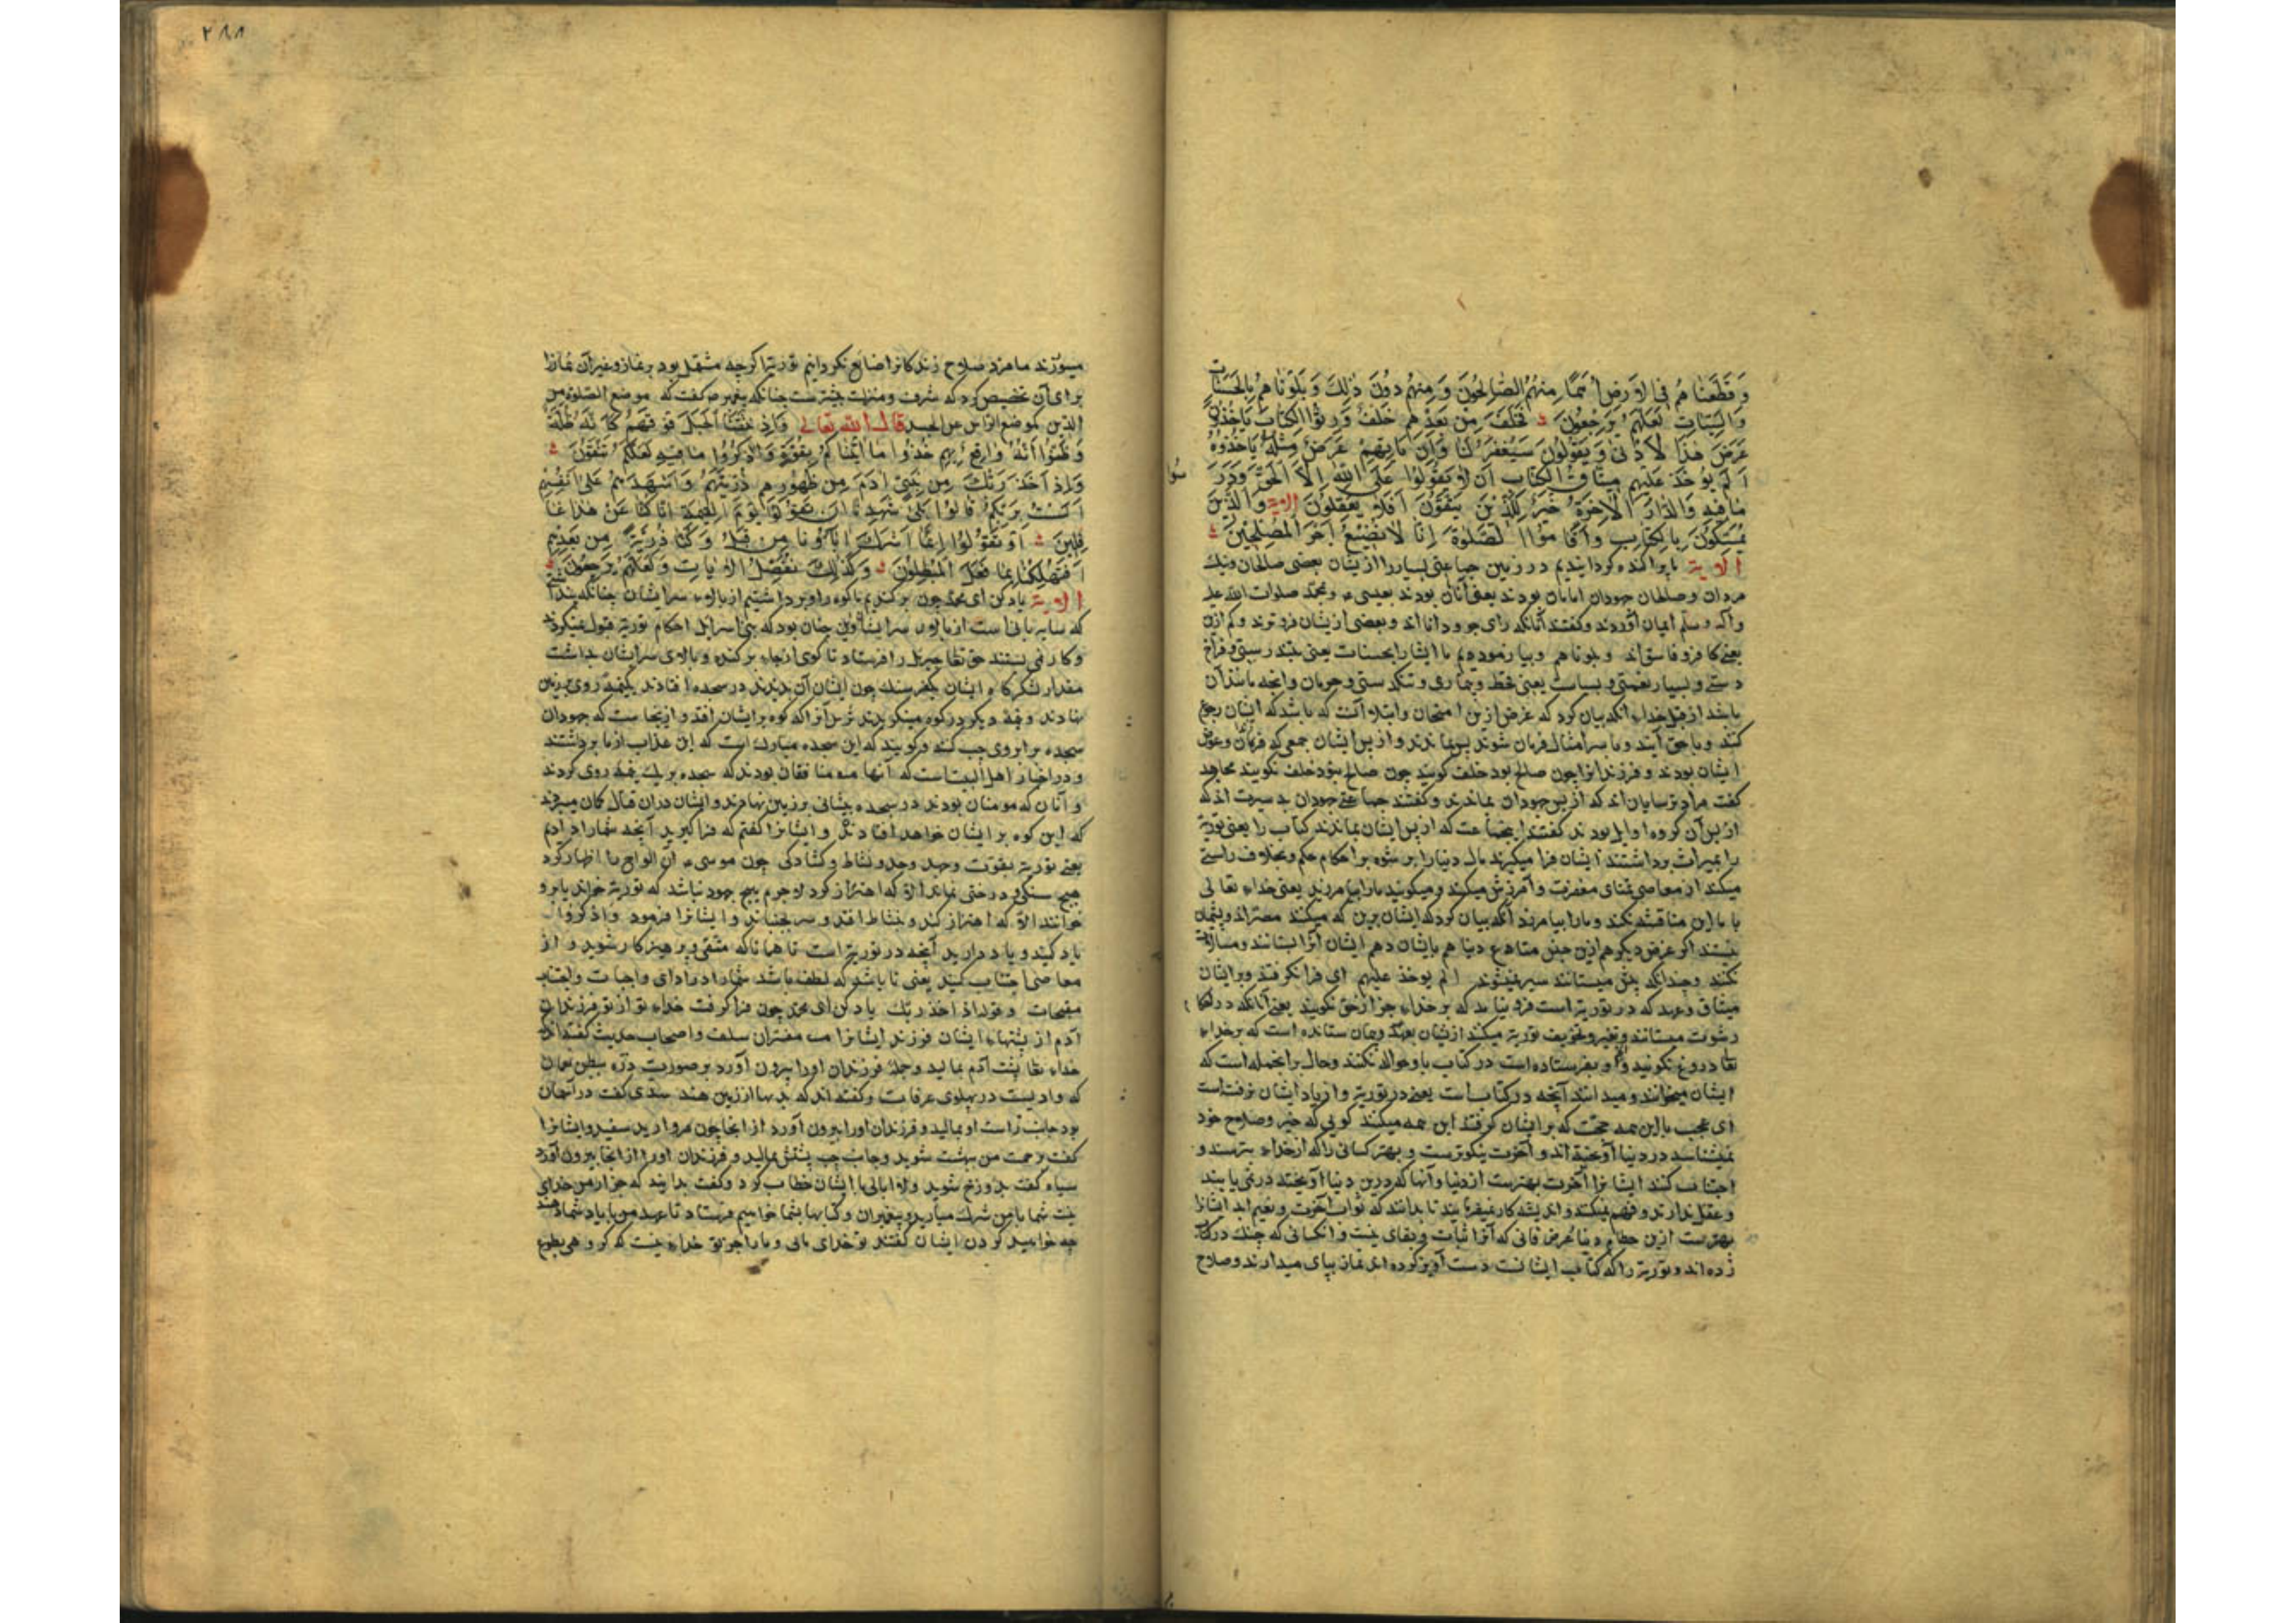 وَقَطَّعْنَاهُمْ فِي الْاَرْضِ اُمَمًا مِنْهُمُ الصَّالِحُونَ وَمِنْهُمْ دُونَ ذٰلِكَ وَبَلَوْنَاهُمْ بِالْحَسَنَاتِ
وَالسَّيِّئَاتِ لَعَلَّهُمْ يَرْجِعُونَ فَخَلَفَ مِنْ بَعْدِهِمْ خَلْفٌ وَرِثُوا الْكِتَابَ يَاْخُذُونَ
عَرَضَ هٰذَا الْاَدْنٰى وَيَقُولُونَ سَيُغْفَرُ لَنَا وَاِنْ يَاْتِهِمْ عَرَضٌ مِثْلُهُ يَاْخُذُوهُ
اَلَمْ يُؤْخَذْ عَلَيْهِمْ مِيثَاقُ الْكِتَابِ اَنْ لَا يَقُولُوا عَلَى اللّٰهِ اِلَّا الْحَقَّ وَدَرَسُوا
مَا فِيهِ وَالدَّارُ الْاٰخِرَةُ خَيْرٌ لِلَّذِينَ يَتَّقُونَ اَفَلَا يَعْقِلُونَ الاية وَالَّذِينَ
يُمَسِّكُونَ بِالْكِتَابِ وَاَقَامُوا الصَّلٰوةَ اِنَّا لَا نُضِيعُ اَجْرَ الْمُصْلِحِينَ
الاية ما پراکنده کردانیدیم در زمین جماعتی بسیار را ازیشان بعضی صالحان ونیک
مردان وصلحان جهودان اینان بودند یعنی آنان بودند بعیسی و بمحمد صلوات الله علیه
وآله وسلم ایمان آوردند وکفتند آنانکه رای جو ودانااند وبعضی ازیشان فروترند وکم ازین
یعنی کافر وفاسق اند وبلوناهم وبیازمودیم ما ایشانرا بحسنات یعنی بتندرستی وفراخ
دستی وبسیار نعمتی وبسیات یعنی بقحط وبیماری وتنکدستی وحرمان وآنچه مانند آن
باشد از قبل خداء آنکه بیان کرد که غرض ازین امتحان وابتلا آنست که باشد که ایشان رجوع
کنند وباحق آیند وبا سر امتثال فرمان شوند پس بماندند واز پس ایشان جمعی که
ایشان بودند وفرزند انرا چون صالح بود خلف کویند چون صالح نبود خلف نکویند مجاهد
کفت مراد ترسایان اند که از پس جهودان بماندند وکفتند جماعتی جهودان بد سیرت اند که
از پس آن کروه اوایل بودند کفتند اینجماعت که از پس ایشان بماندند کتاب را یعنی توریة
را بمیراث برداشتند ایشان فرا میکیرند مال دنیا را بر رشوه بر احکام حکم وبخلاف راستی
میکنند از معاصی تمنای مغفرت وآمرزش میکنند ومیکویند مارا بیامرزند یعنی خداء تعالی
با ما این مناقشه نکند ومارا بیامرزد آنکه بیان کرد که ایشان برین که میکنند مصراند وپشیمان
نیستند اکر عرض دیکر هم ازین جنس متاع دنیا هم بایشان دهم ایشان آنرا بستانند ومبالات
نکنند وچندانکه بیش میستانند سیر نمیشوند الم یوخذ علیهم ای فرا نکرفتند وبر ایشان
میثاق وعهد که در توریة است فرو نیامد که بر خداء جز از حق نکویند یعنی آنانکه در
رشوت میستانند وتغییر وتحریف توریة میکنند ازیشان عهد وپیمان ستانده است که بر خداء
تعا دروغ نکویند واو بنفرستاده است در کتاب باو حواله نکنند وحال برانجمله است که
ایشان میخوانند ومیدانند آنچه در کتابست یعنی در توریة واز یاد ایشان نرفته است
ای عجب با این همه حجت که بر ایشان کرفتند این همه میکنند کویی که خیر وصلاح خود
نمیشناسد در دنیا آویخته اند وآخرت نیکوترست وبهتر کسانی را که از خداء بترسند و
اجتناب کنند ایشانرا آخرت بهترست از دنیا وآنها که درین دنیا آویختند درنمی یابند
وعقل ندارند وفهم نمیکنند واندیشه کار نمیفرمایند تا بدانند که ثواب آخرت ونعیم ابد ایشانرا
بهترست ازین حطام دنیا عرض فانی که آنرا ثبات وبقای نیست وآنکسانی که چنک در کتاب
زده اند وتوریة را که کتاب ایشانست دست آویز کرده اند نماز بپای میدارند وصلاح
٢٨٨
میورزند ما مزد صلاح ورزندکانرا ضایع نکردانیم توریة اکر چه مشتمل بود بر نماز وغیر آن نماز را
برای آن تخصیص کرد که شرف ومنزلت بیشترست چنانکه پیغمبر ص کفت که موضع الصلوة من
الدین کموضع الراس من الجسد قال الله تعالی وَاِذْ نَتَقْنَا الْجَبَلَ فَوْقَهُمْ كَاَنَّهُ ظُلَّةٌ
وَظَنُّوا اَنَّهُ وَاقِعٌ بِهِمْ خُذُوا مَا اٰتَيْنَاكُمْ بِقُوَّةٍ وَاذْكُرُوا مَا فِيهِ لَعَلَّكُمْ تَتَّقُونَ
وَاِذْ اَخَذَ رَبُّكَ مِنْ بَنِي اٰدَمَ مِنْ ظُهُورِهِمْ ذُرِّيَّتَهُمْ وَاَشْهَدَهُمْ عَلٰى اَنْفُسِهِمْ
اَلَسْتُ بِرَبِّكُمْ قَالُوا بَلٰى شَهِدْنَا اَنْ تَقُولُوا يَوْمَ الْقِيٰمَةِ اِنَّا كُنَّا عَنْ هٰذَا غَا
فِلِينَ اَوْ تَقُولُوا اِنَّمَا اَشْرَكَ اٰبَاؤُنَا مِنْ قَبْلُ وَكُنَّا ذُرِّيَّةً مِنْ بَعْدِهِمْ
اَفَتُهْلِكُنَا بِمَا فَعَلَ الْمُبْطِلُونَ وَكَذٰلِكَ نُفَصِّلُ الْاٰيَاتِ وَلَعَلَّهُمْ يَرْجِعُونَ
الاية یاد کن ای محمد چون برکندیم ما کوه را وبرداشتیم از بالاء سر ایشان چنانکه پنداری
که سایه بانی است از بالای سر ایشان واین چنان بود که بنی اسرائیل احکام توریة قبول نمیکردند
وکار نمی بستند حق تعا جبریل را فرستاد تا کوهی از جاء برکند وبالای سر ایشان بداشت
مقدار لشکرکاه ایشان یکفرسنک چون ایشان آن بدیدند در سجده افتادند یکنیمه روی بر زمین
نهادند ونیمۀ دیکر در کوه مینکریدند ترس آنرا که کوه بر ایشان افتد وازینجاست که جهودان
سجده بر ابروی چپ کنند وکویند که این سجده مبارکست که این عذاب از ما برداشتند
ودر اخبار اهل البیت است که آنها منافقان بودند که سجده بر یک نیمه روی کردند
وآنان که مومنان بودند در سجده پیشانی بر زمین نهادند وایشان دران قتال کمان میبردند
که این کوه بر ایشان خواهد افتادن وایشانرا کفتم که فرا کیرید آنچه شمارا دادیم
یعنی توریة بقوت وجهد وجد ونشاط وکشادکی چون موسی آن الواح را اظهار کرد
هیچ سنکی ودرختی نماند الا که اهتزاز کرد لاجرم هیچ جهود نباشد که توریة خواند یا برو
خوانند الا که اهتزاز کند ونشاط افتد وسر بجنباند وایشانرا فرمود واذکروا
یاد کنید ویاد دارید آنچه در توریة است تا همانا که متقی وپرهیزکار شوید واز
معاصی اجتناب کنید یعنی تا باشد که لطف باشد شمارا در ادای واجبات واجتناب
مقبحات وقوله اذ اخذ ربک یاد کن ای محمد چون فرا کرفت خداء تو از تو فرزندان
آدم از پشتهاء ایشان فرزند ایشانرا مفسران سلف واصحاب حدیث کفته اند
خداء تعا پشت آدم بمالید وجملۀ فرزندان اورا بیرون آورد بر صورت ذره ببطن نعمان
که وادیست در پهلوی عرفات وکفته اند که بدهنا از زمین هند سدی کفت در آسمان
بود جانب راست او بمالید وفرزندان اورا بیرون آورد از انجا چون مروارید سفید وایشانرا
کفت برحمت من ببهشت شوید وجانب چپ پشتش بمالید وفرزندان اورا از انجا بیرون آورد
سیاه کفت بدوزخ شوید ولا ابالی با ایشان خطاب کرد وکفت بدانید که جز از من خدای
نیست شما با من شرک میارید وپیغمبران وکتابها بشما خواهیم فرستاد تا عهد من بایاد شما دهند
چه خواهید کردن ایشان کفتند تو خدای مائی ومارا جز تو خداء نیست که کروهی بطوع